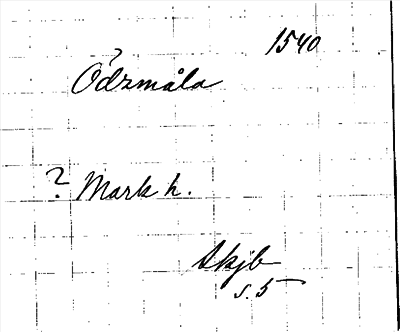 1540
?
Ödzmåla
? Mark h.
Skjb
s. 5